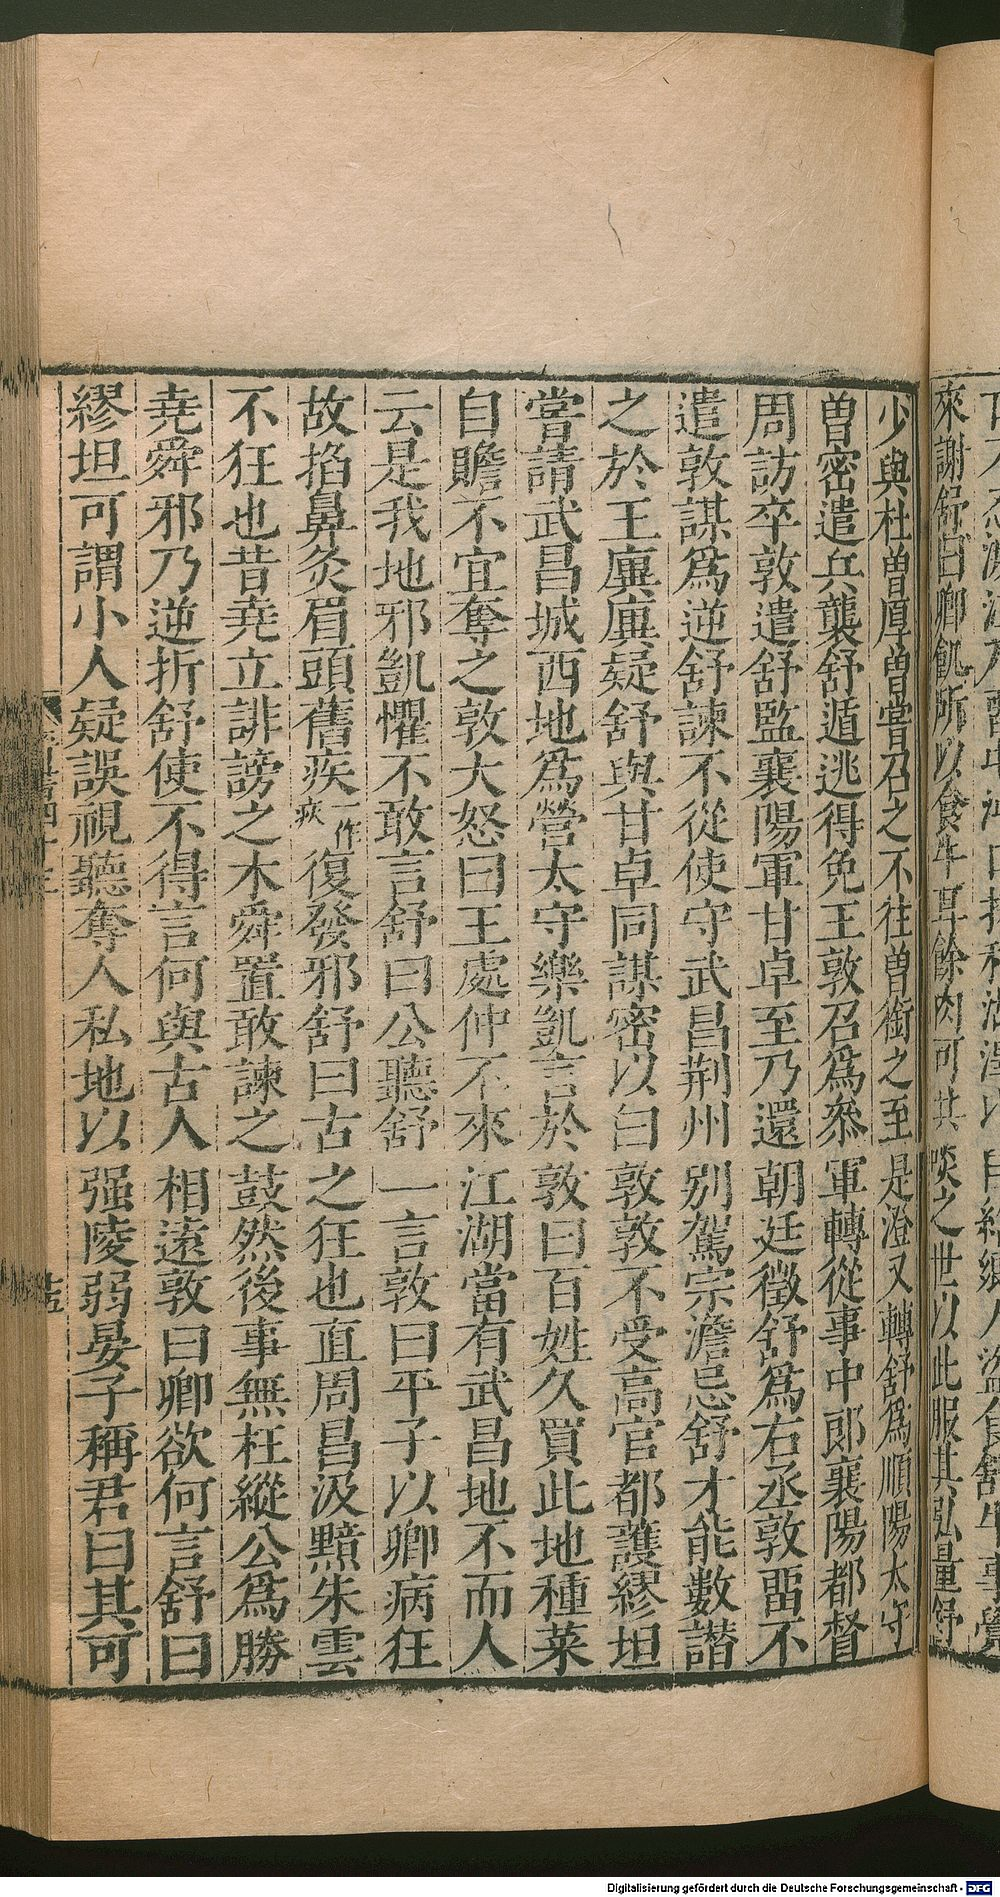 來謝舒曰卿飢所以食牛耳餘肉可共啖之世以此服其弘量舒
少與杜曾厚曾嘗召之不往曾銜之至是澄又轉舒爲順陽太守
曾密遣兵襲舒遁逃得免王敦召爲叅軍轉從事中郎襄陽都督
周訪卒敦遣舒監襄陽軍甘卓至乃還朝廷徵舒爲右丞敦畱不
遣敦謀爲逆舒諫不從使守武昌荆州别駕宗澹忌舒才能數譖
之於王廙廙疑舒與甘卓同謀密以白敦敦不受高官都護繆坦
嘗請武昌城西地爲營太守樂凱言於敦曰百姓久買此地種菜
自贍不宜奪之敦大怒曰王處仲不來江湖當有武昌地不而人
云是我地邪凱懼不敢言舒曰公聽舒一言敦曰平子以卿病狂
故掐鼻灸眉頭舊疾一作疢復發邪舒曰古之狂也直周昌汲黯朱雲
不狂也昔堯立誹謗之木舜置敢諫之鼓然後事無枉縱公爲勝
堯舜邪乃逆折舒使不得言何與古人相遠敦曰卿欲何言舒曰
繆坦可謂小人疑誤視聽奪人私地以强陵弱晏子稱君曰其可
Digitalisierung gefördert durch die Deutsche Forschungsgemeinschaft - DFG